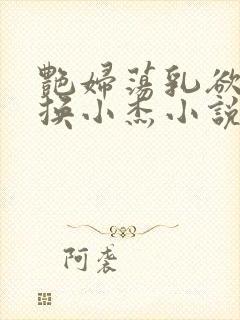 艷婦蕩乳欲
換小杰小說
阿袭